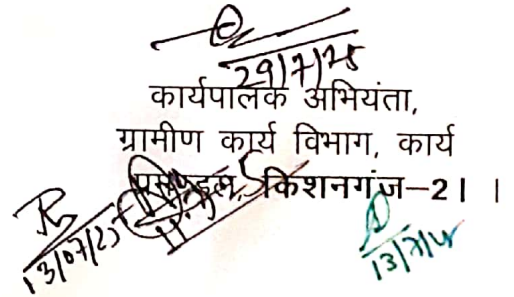 29/7/25
कार्यपालक अभियंता,
ग्रामीण कार्य विभाग, कार्य
प्रमण्डल, किशनगंज–2। ।
13/07/25
13/7/25